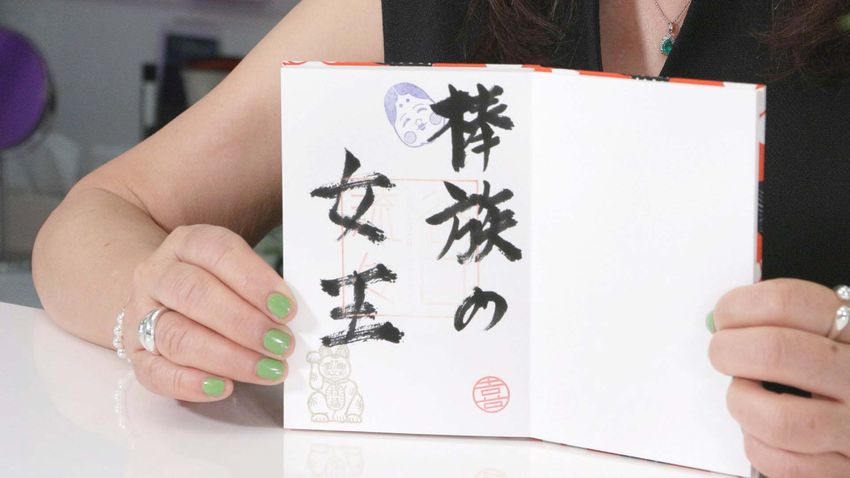 棒族の
女王
吉